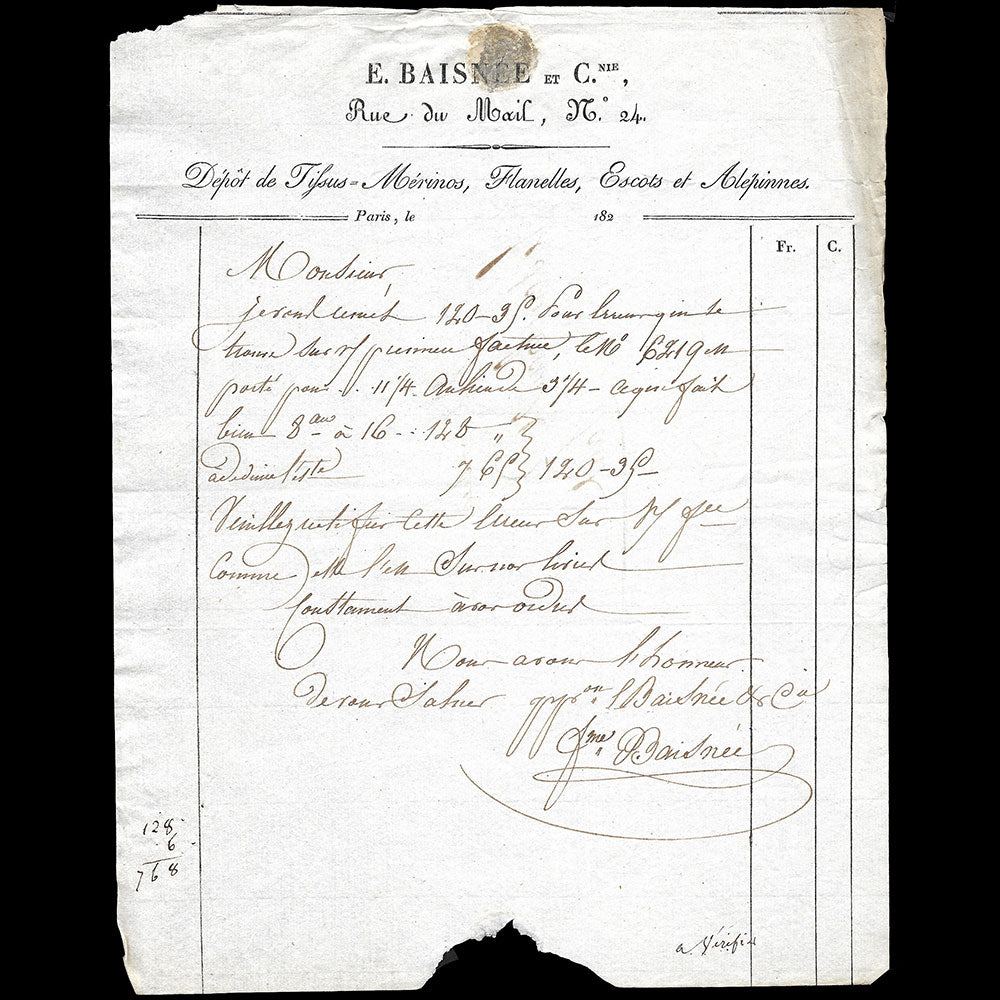 E. BAISNÉE ET C.NIE,
Rue du Mail, N.o 24.
Dépôt de Tissus=Mérinos, Flanelles, Escots et Alépinnes.
Paris, le 182
Fr. C.
Monsieur,
je vous remet 120-35. Pour l'erreur qui se
trouve sur n/ facture, le No 6219 est
porté pour .. 11 1/4 Au lieu de 3 1/4 - ce qui fait
bien 8 au à 16 .. 128 "
à déduire l'es.te 7 65 } 120-35
Veuillez rectifier cette erreur sur n/ f.ree
Comme elle l'est sur nos livres
Constament à vos ordres
Nous avons l'honneur
de vous saluer pp.on E Baisnée & Cie
f.me Baisnée
128
6
768
a Vérifié